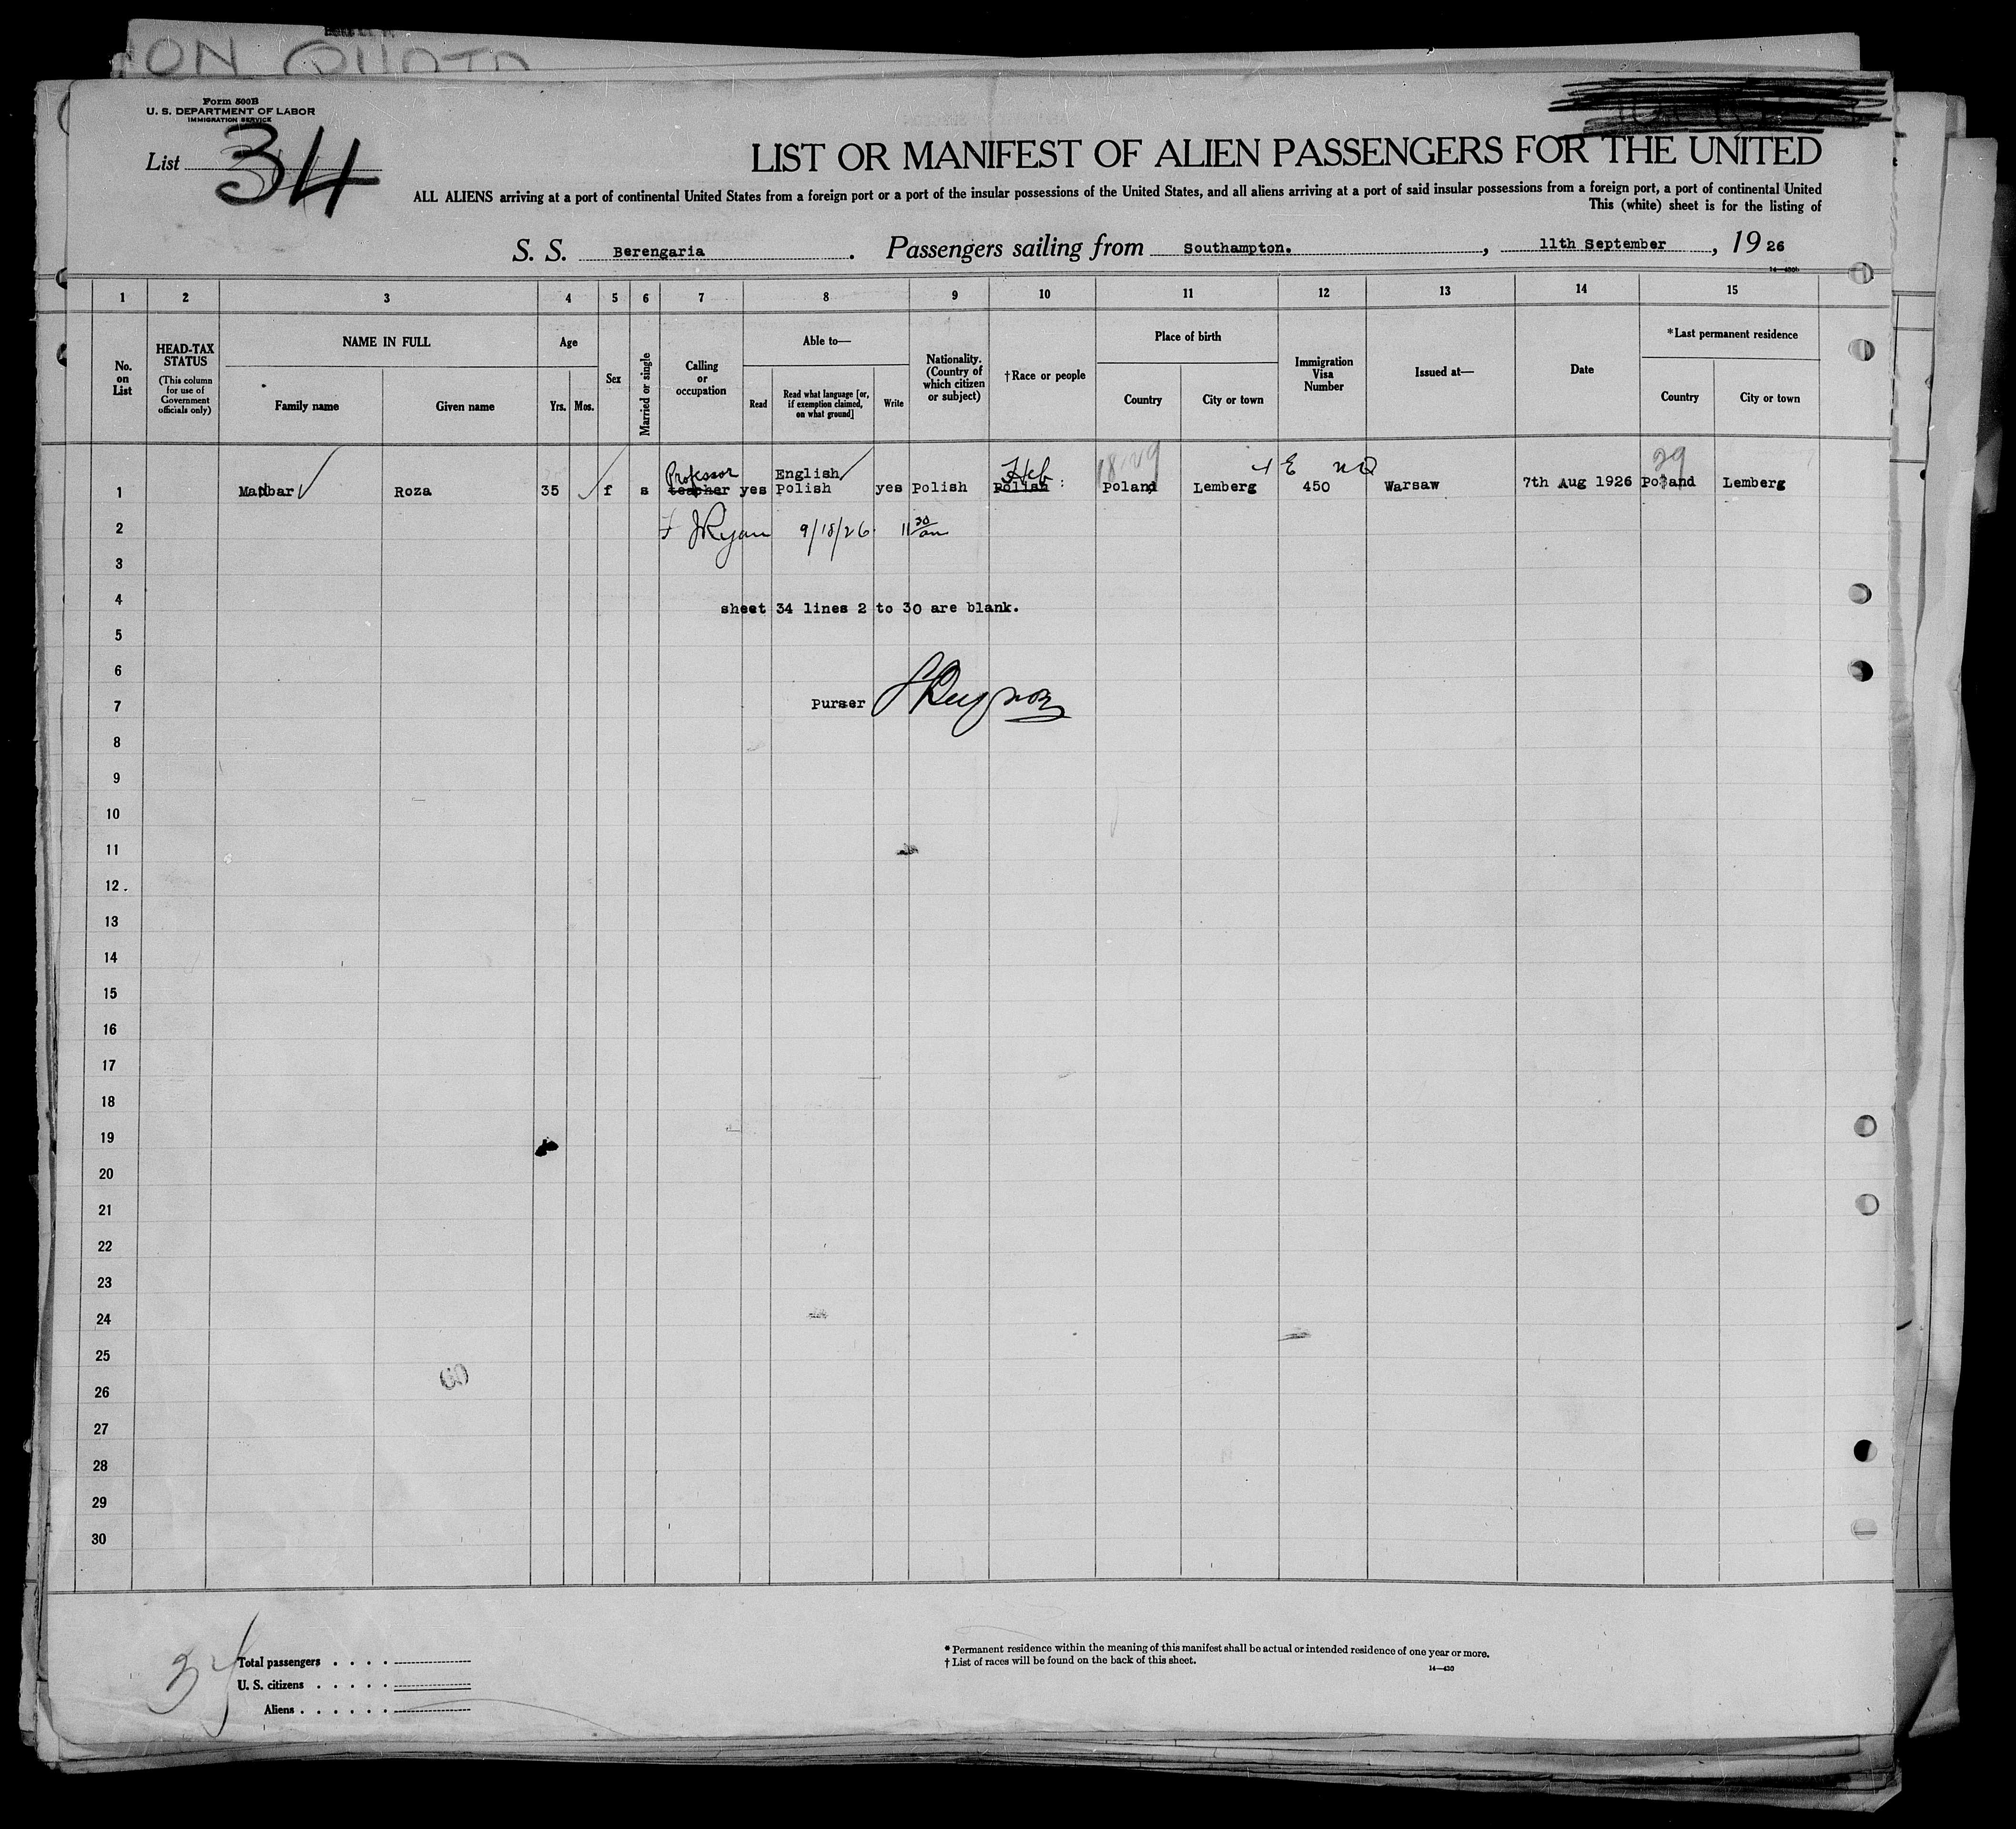 NON QUOTA
Form 500B
U. S. DEPARTMENT OF LABOR
IMMIGRATION SERVICE
List 34
LIST OR MANIFEST OF ALIEN PASSENGERS FOR THE UNITED
ALL ALIENS arriving at a port of continental United States from a foreign port or a port of the insular possessions of the United States, and all aliens arriving at a port of said insular possessions from a foreign port, a port of continental United
This (white) sheet is for the listing of
S. S. Berengaria. Passengers sailing from Southampton., 11th September, 1926
1 2 3 4 5 6 7 8 9 10 11 12 13 14 15
No. on List
HEAD-TAX STATUS
(This column for use of Government officials only)
NAME IN FULL
Family name
Given name
Age
Yrs. Mos.
Sex
Married or single
Calling or occupation
Able to—
Read
Read what language [or, if exemption claimed, on what ground]
Write
Nationality. (Country of which citizen or subject)
†Race or people
Place of birth
Country
City or town
Immigration Visa Number
Issued at—
Date
*Last permanent residence
Country
City or town
Professor English Heb 4 E NQ 29
1 Roza 35 f s teacher yes Polish yes Polish Polish Poland Lemberg 450 Warsaw 7th Aug 1926 Poland Lemberg
2 JRyan 9/18/26 11 30 am
3
4 sheet 34 lines 2 to 30 are blank.
5
6
7 Purser
8
9
10
11
12
13
14
15
16
17
18
19
20
21
22
23
24
25
26
27
28
29
30
34
Total passengers . . . .
U. S. citizens . . . . .
Aliens . . . . . .
* Permanent residence within the meaning of this manifest shall be actual or intended residence of one year or more.
† List of races will be found on the back of this sheet.
14—430